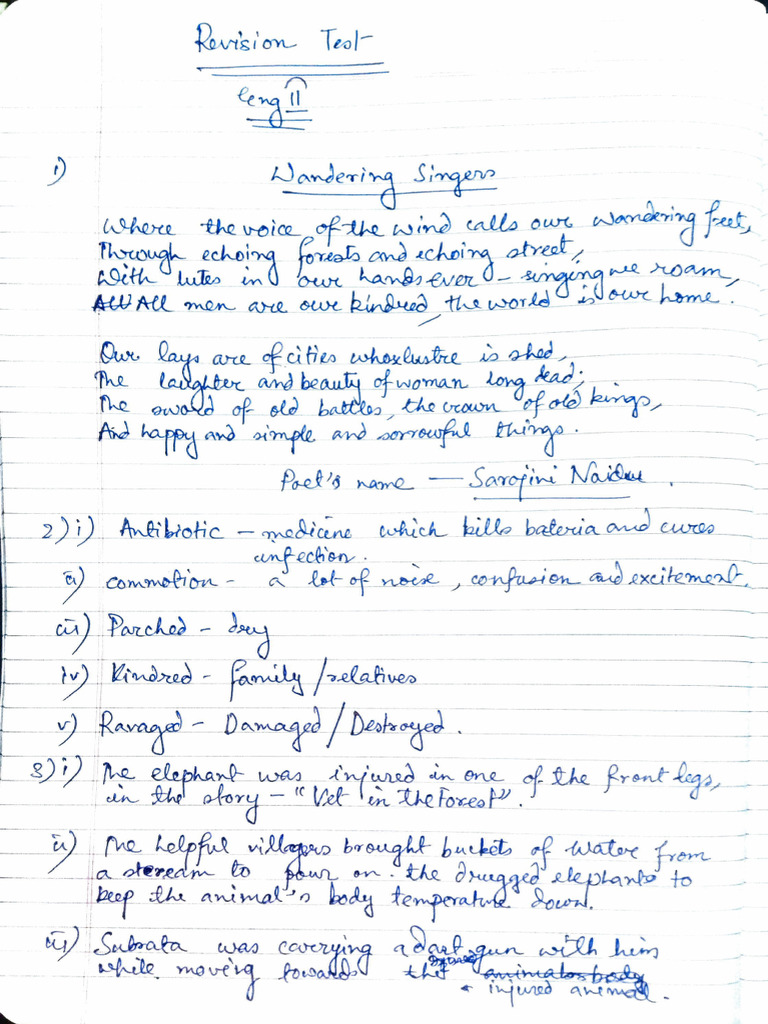 Revision Test
Leng II
1) Wandering Singers
Where the voice of the wind calls our wandering feet,
Through echoing forests and echoing street,
With lutes in our hands ever - singing we roam,
All men are our kindred, the world is our home.
Our lays are of cities whose lustre is shed,
The laughter and beauty of woman long dead;
The sword of old battles, the crown of old kings,
And happy and simple and sorrowful things.
Poet's name — Sarojini Naidu.
2) i) Antibiotic - medicine which kills bateria and cures
infection.
ii) commotion - a lot of noise, confusion and excitement.
iii) Parched - dry
iv) Kindred - family / relatives
v) Ravaged - Damaged / Destroyed.
3) i) The elephant was injured in one of the front legs,
in the story - "Vet in The Forest".
ii) The helpful villagers brought buckets of water from
a stream to pour on the drugged elephants to
keep the animal's body temperature down.
iii) Subrata was carrying a dart gun with him
while moving towards the
injured animal.